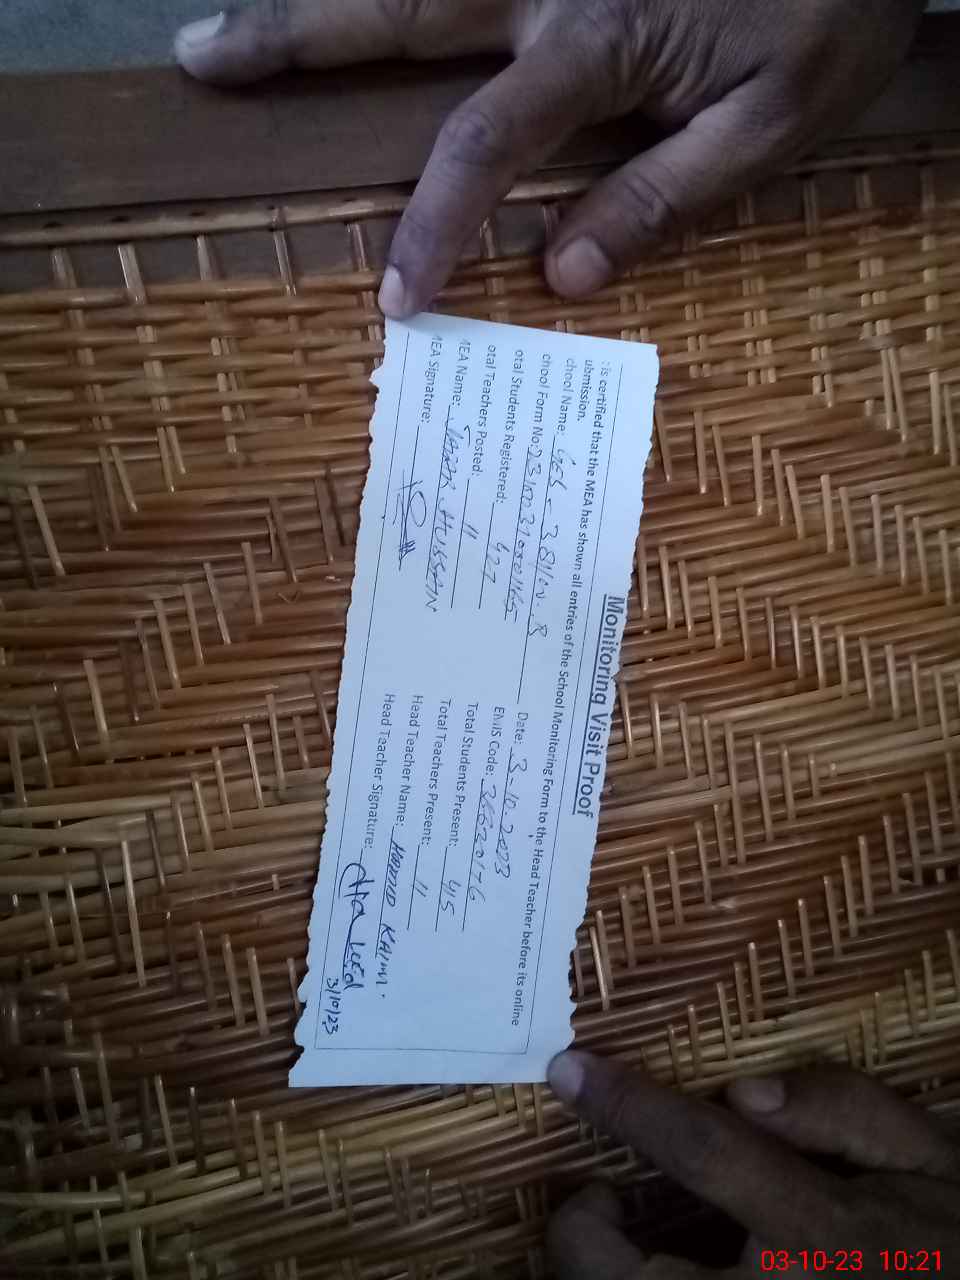 Monitoring Visit Proof
: is certified that the MEA has shown all entries of the School Monitoring Form to the Head Teacher before its online
ubmission.
chool Name: Date: 3.10.2023
chool Form No: EMIS Code:
otal Students Registered: 427 Total Students Present: 415
otal Teachers Posted: 11 Total Teachers Present: 11
MEA Name: HUSSAIN Head Teacher Name:
MEA Signature: Head Teacher Signature:
3/10/23
03-10-23 10:21